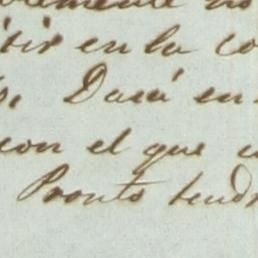 no
tir en la co
Dará en
con el que
Pronto tend